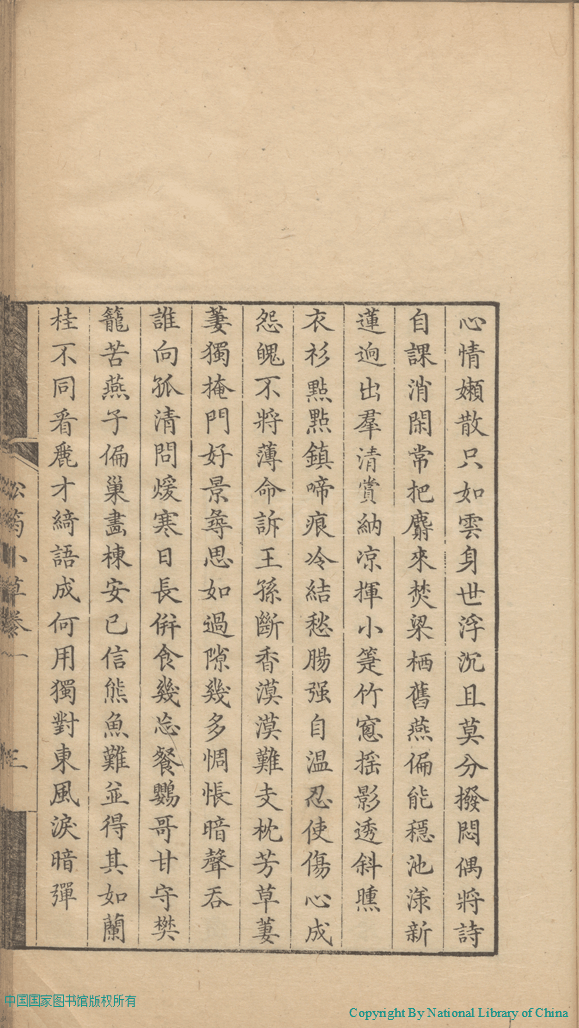 心情嬾散只如雲身世浮沉且莫分撥悶偶將詩
自課消閑常把麝來焚梁栖舊燕偏能穩池漾新
蓮逈出羣清賞納凉揮小箑竹窻揺影透斜曛
衣衫點點鎮啼痕冷結愁腸强自温忍使傷心成
怨魄不將薄命訴王孫斷香漠漠難支枕芳草萋
萋獨掩門好景尋思如過隙幾多惆悵暗聲吞
誰向孤清問煖寒日長倂食幾忘餐鸚哥甘守樊
籠苦燕子偏巢畫棟安已信熊魚難並得其如蘭
桂不同看麂才綺語成何用獨對東風淚暗彈
松菊小草卷一
中国国家图书馆版权所有
Copyright By National Library of China